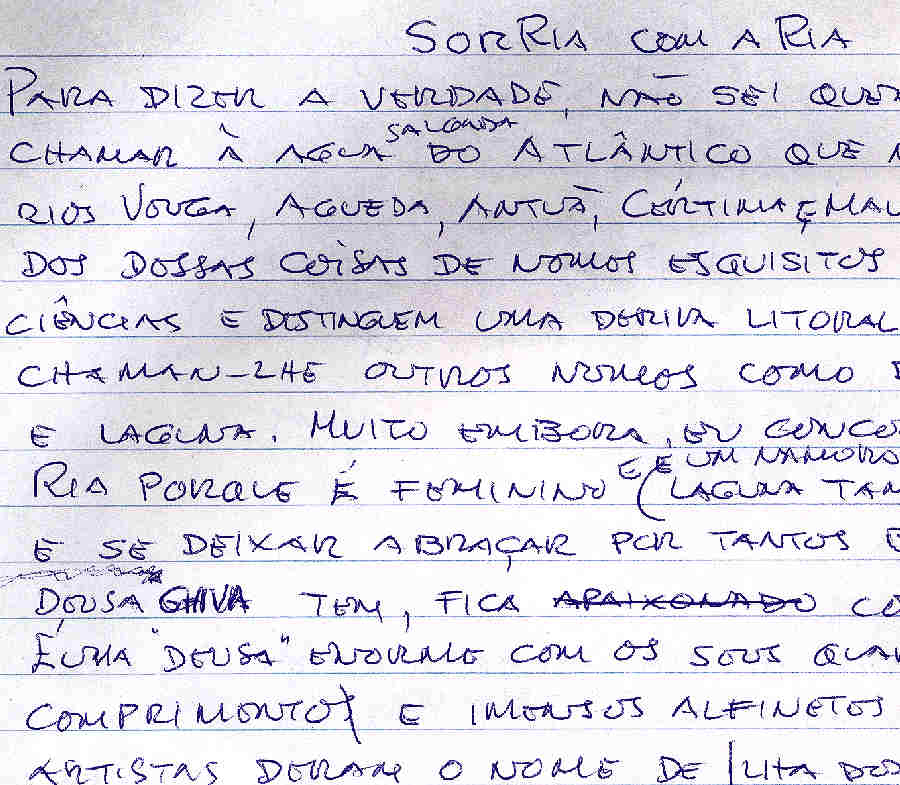 SORRIA COM A RIA
PARA DIZER A VERDADE, NÃO SEI QUE
CHAMAR À AGUA SALGADA DO ATLÂNTICO QUE
RIOS VOUGA, AGUEDA, ANTUÃ, CÉRTIMA E
DOS DOSSAS COISAS DE NOMES ESQUISITOS
CIÊNCIAS E DISTINGUEM UMA DERIVA LITORAL
CHAMAN-LHE OUTROS NOMES COMO
E LAGUNA. MUITO EMBORA, EU CONCO
RIA PORQUE É FEMININO E É UM NAMORO (LAGUNA TAM
E SE DEIXAR ABRAÇAR POR TANTOS
DEUSA TEM, FICA APAIXONADO CO
É UMA "DEUSA" ENORME COM OS SEUS QUA
COMPRIMENTO E IMENSOS ALFINETES
ARTISTAS DERAM O NOME DE ILHA DOS